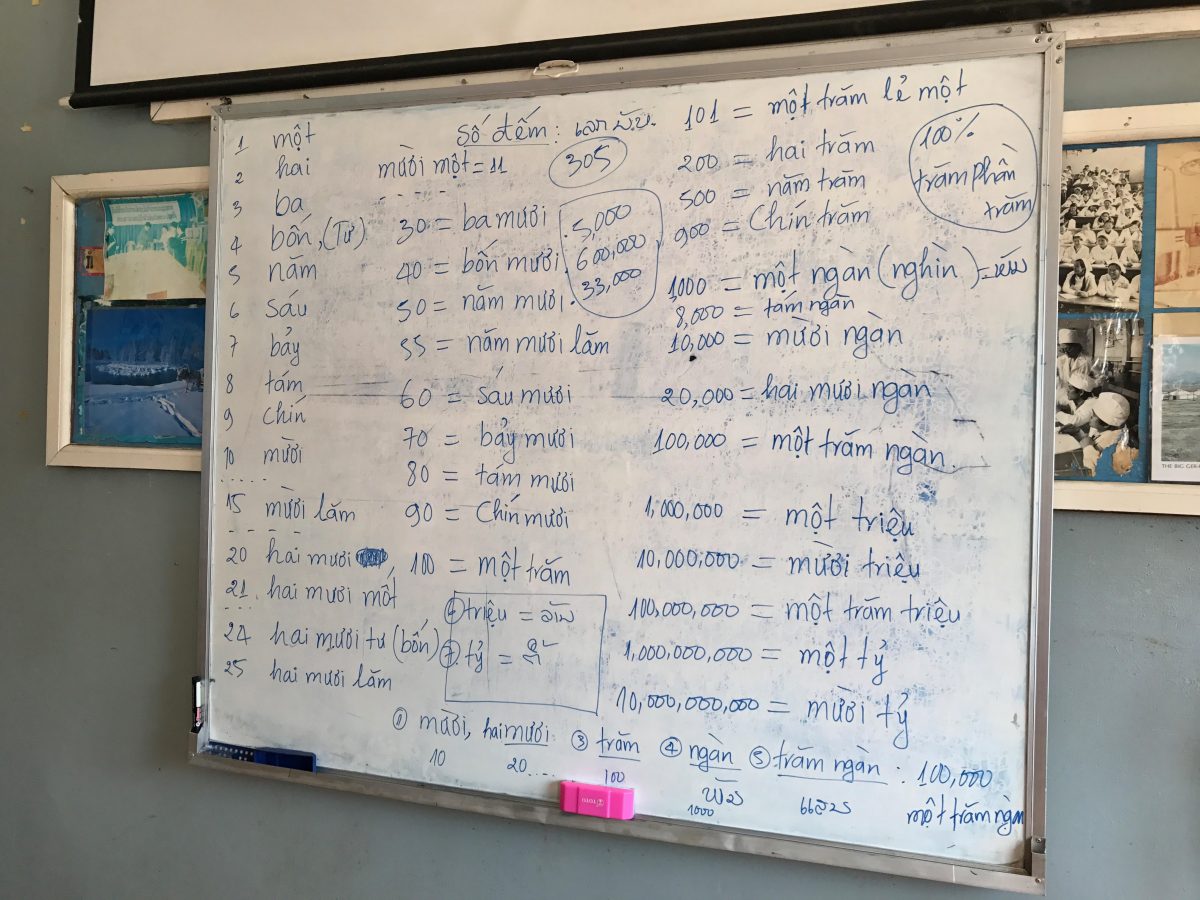 số đếm: ເລກນັບ.
1 một
2 hai
3 ba
4 bốn, (Tư)
5 năm
6 sáu
7 bảy
8 tám
9 Chín
10 mười
15 mười lăm
20 hai mươi
21. hai mươi mốt
24 hai mươi tư (bốn)
25 hai mươi lăm
mười một = 11
30 = ba mươi
40 = bốn mươi
50 = năm mươi
55 = năm mươi lăm
60 = sáu mươi
70 = bảy mươi
80 = tám mươi
90 = Chín mươi
100 = một trăm
305
5,000
600,000
33,000
triệu = ລ້ານ
tỷ = ຕື້
101 = một trăm lẻ một
200 = hai trăm
500 = năm trăm
900 = Chín trăm
1000 = một ngàn (nghìn) = ພັນ
8,000 = tám ngàn
10,000 = mười ngàn
20,000 = hai mươi ngàn
100,000 = một trăm ngàn
1,000,000 = một triệu
10,000,000 = mười triệu
100,000,000 = một trăm triệu
1,000,000,000 = một tỷ
10,000,000,000 = mười tỷ
100%
trăm phần
trăm
① mười, hai mươi ③ trăm ④ ngàn ⑤ trăm ngàn : 100,000
10 20.... 100 ພັນ ແສນ một trăm ngàn
1000
THE BIG GER